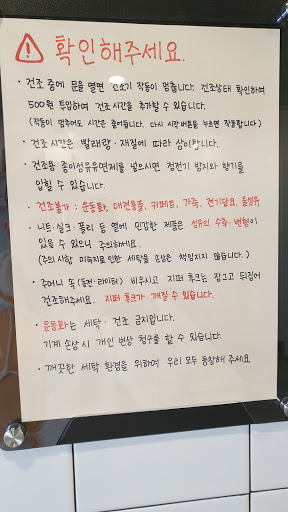 확인해주세요.
· 건조 중에 문을 열면 건조기 작동이 멈춥니다. 건조상태 확인하여
500원 투입하여 건조시간을 추가할 수 있습니다.
(작동이 멈추어도 시간은 줄어듭니다. 다시 시작버튼을 누르면 작동합니다.)
· 건조시간은 빨래량·재질에 따라 상이합니다.
· 건조용 종이섬유유연제를 넣으시면 정전기 방지와 향기를
입힐 수 있습니다.
· 건조불가 : 운동화, 애견용품, 카페트, 가죽, 전기담요, 솜섬유
· 니트·실크·폴리 등 열에 민감한 제품은 섬유의 수축·변형이
있을 수 있으니 주의하세요.
(주의 사항 미숙지로 인한 세탁물 손상은 책임지지 않습니다.)
· 주머니 속(동전·라이터) 비우시고 지퍼 후크는 잠그고 뒤집어
건조해주세요. 지퍼 후크가 깨질 수 있습니다.
· 운동화는 세탁·건조 금지입니다.
기계 손상 시 개인 변상 청구를 할 수 있습니다.
· 깨끗한 세탁 환경을 위하여 우리 모두 동참해 주세요